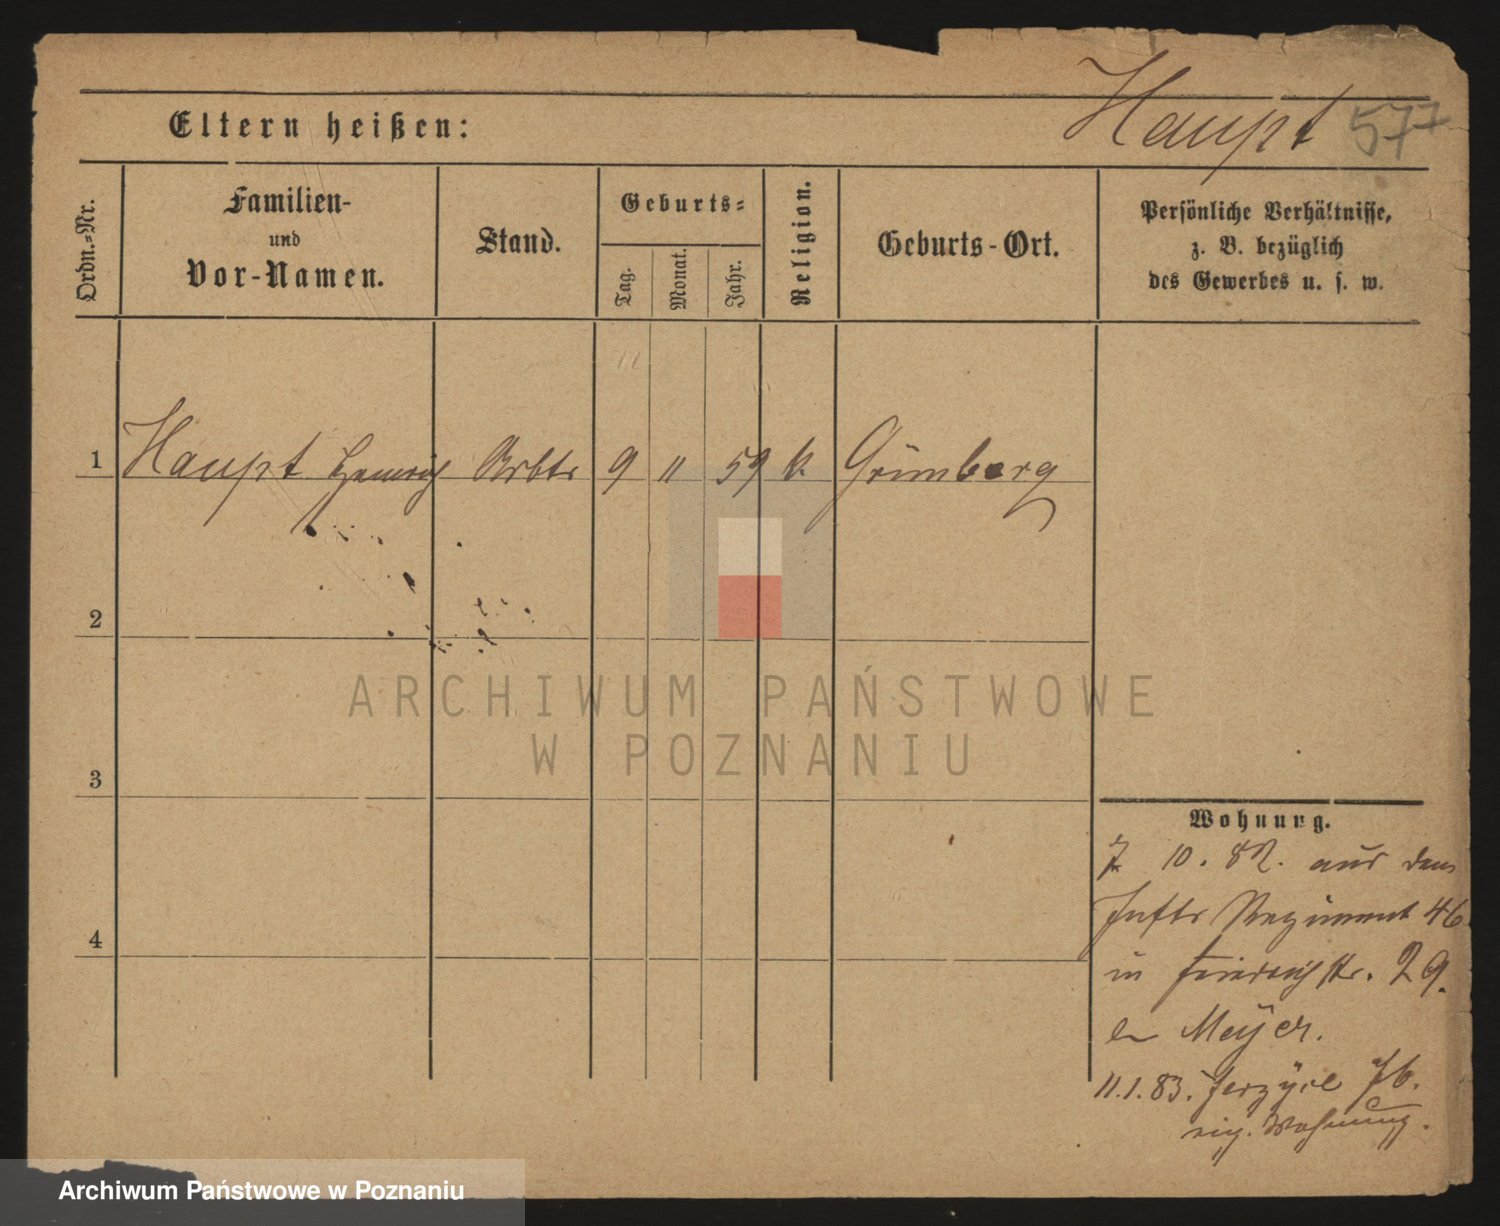 Haupt 577
Eltern heißen:
Ordn.-Nr.
Familien-
und
Vor-Namen.
Stand.
Geburts-
Tag.
Monat.
Jahr.
Religion.
Geburts-Ort.
Persönliche Verhältnisse,
z. B. bezüglich
des Gewerbes u. s. w.
1 Haupt Heinrich Arbtr 9 11 59 k. Grünberg
2
3
4
Wohnung.
7 10. 82. aus dem
Inftr Regiment 46
in Friedrichstr. 29.
Meyer.
11.1.83. Jerzyce 76.
eig. Wohnung.
ARCHIWUM PAŃSTWOWE
W POZNANIU
Archiwum Państwowe w Poznaniu